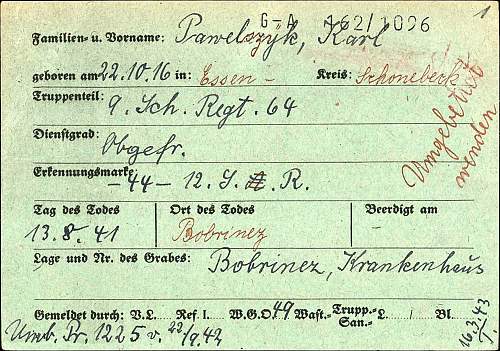 G-A 162/1096 1
Familien- u. Vorname: Pawelszyk, Karl
geboren am 22.10.16 in: Essen - Kreis: Schonebeck
Truppenteil: 9. Sch. Regt. 64
Dienstgrad: Obgefr.
Erkennungsmarke: -44- 12. S. R.
Umgebettet
wenden
Tag des Todes Ort des Todes Beerdigt am
13.8.41 Bobrinez
Lage und Nr. des Grabes: Bobrinez, Krankenhaus
Gemeldet durch: V.L. Ref. I. W.G.O. 49 Wast.- Trupp.- San.- L. Bl.
Umb. Pr. 1225 v. 22/9.42
16.3.43